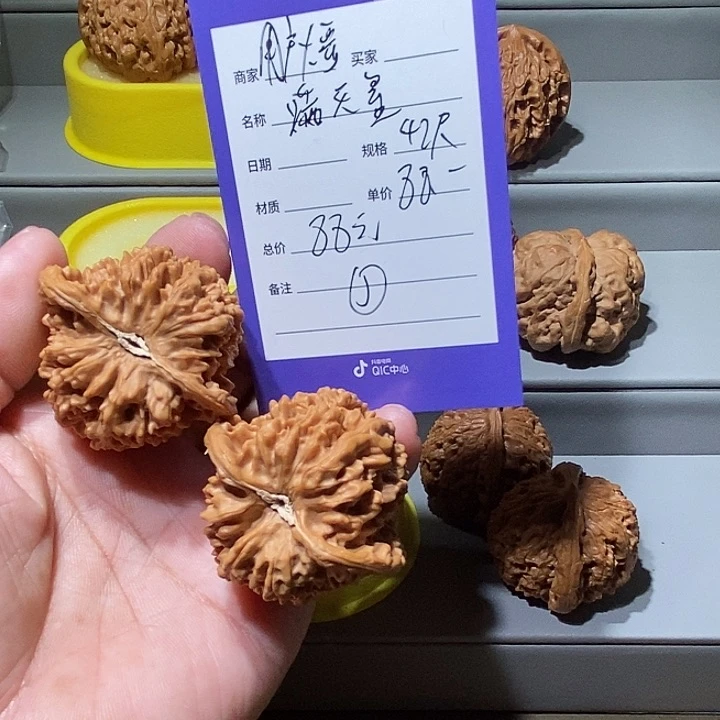 商家 买家
名称 满天星
日期 规格 42尺
材质 单价 88一
总价 88元
备注 ①
抖音电商
QIC中心